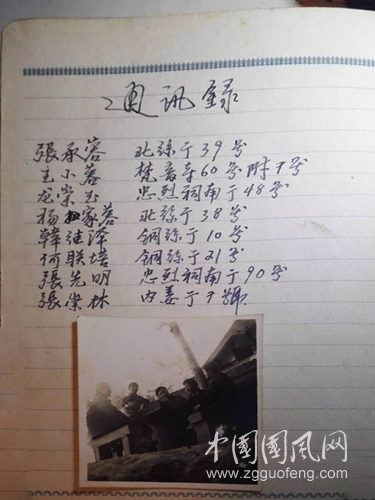 通讯錄
張承蓉 北丝于39号
王小蓉 梵音寺60号附7号
龙崇玉 忠烈祠南于48号
杨家蓉 北丝于38号
韓继泽 铜丝于10号
何联培 铜丝于21号
張先明 忠烈祠南于90号
張崇林 内姜于7號
中国国风网
www.zgguofeng.com